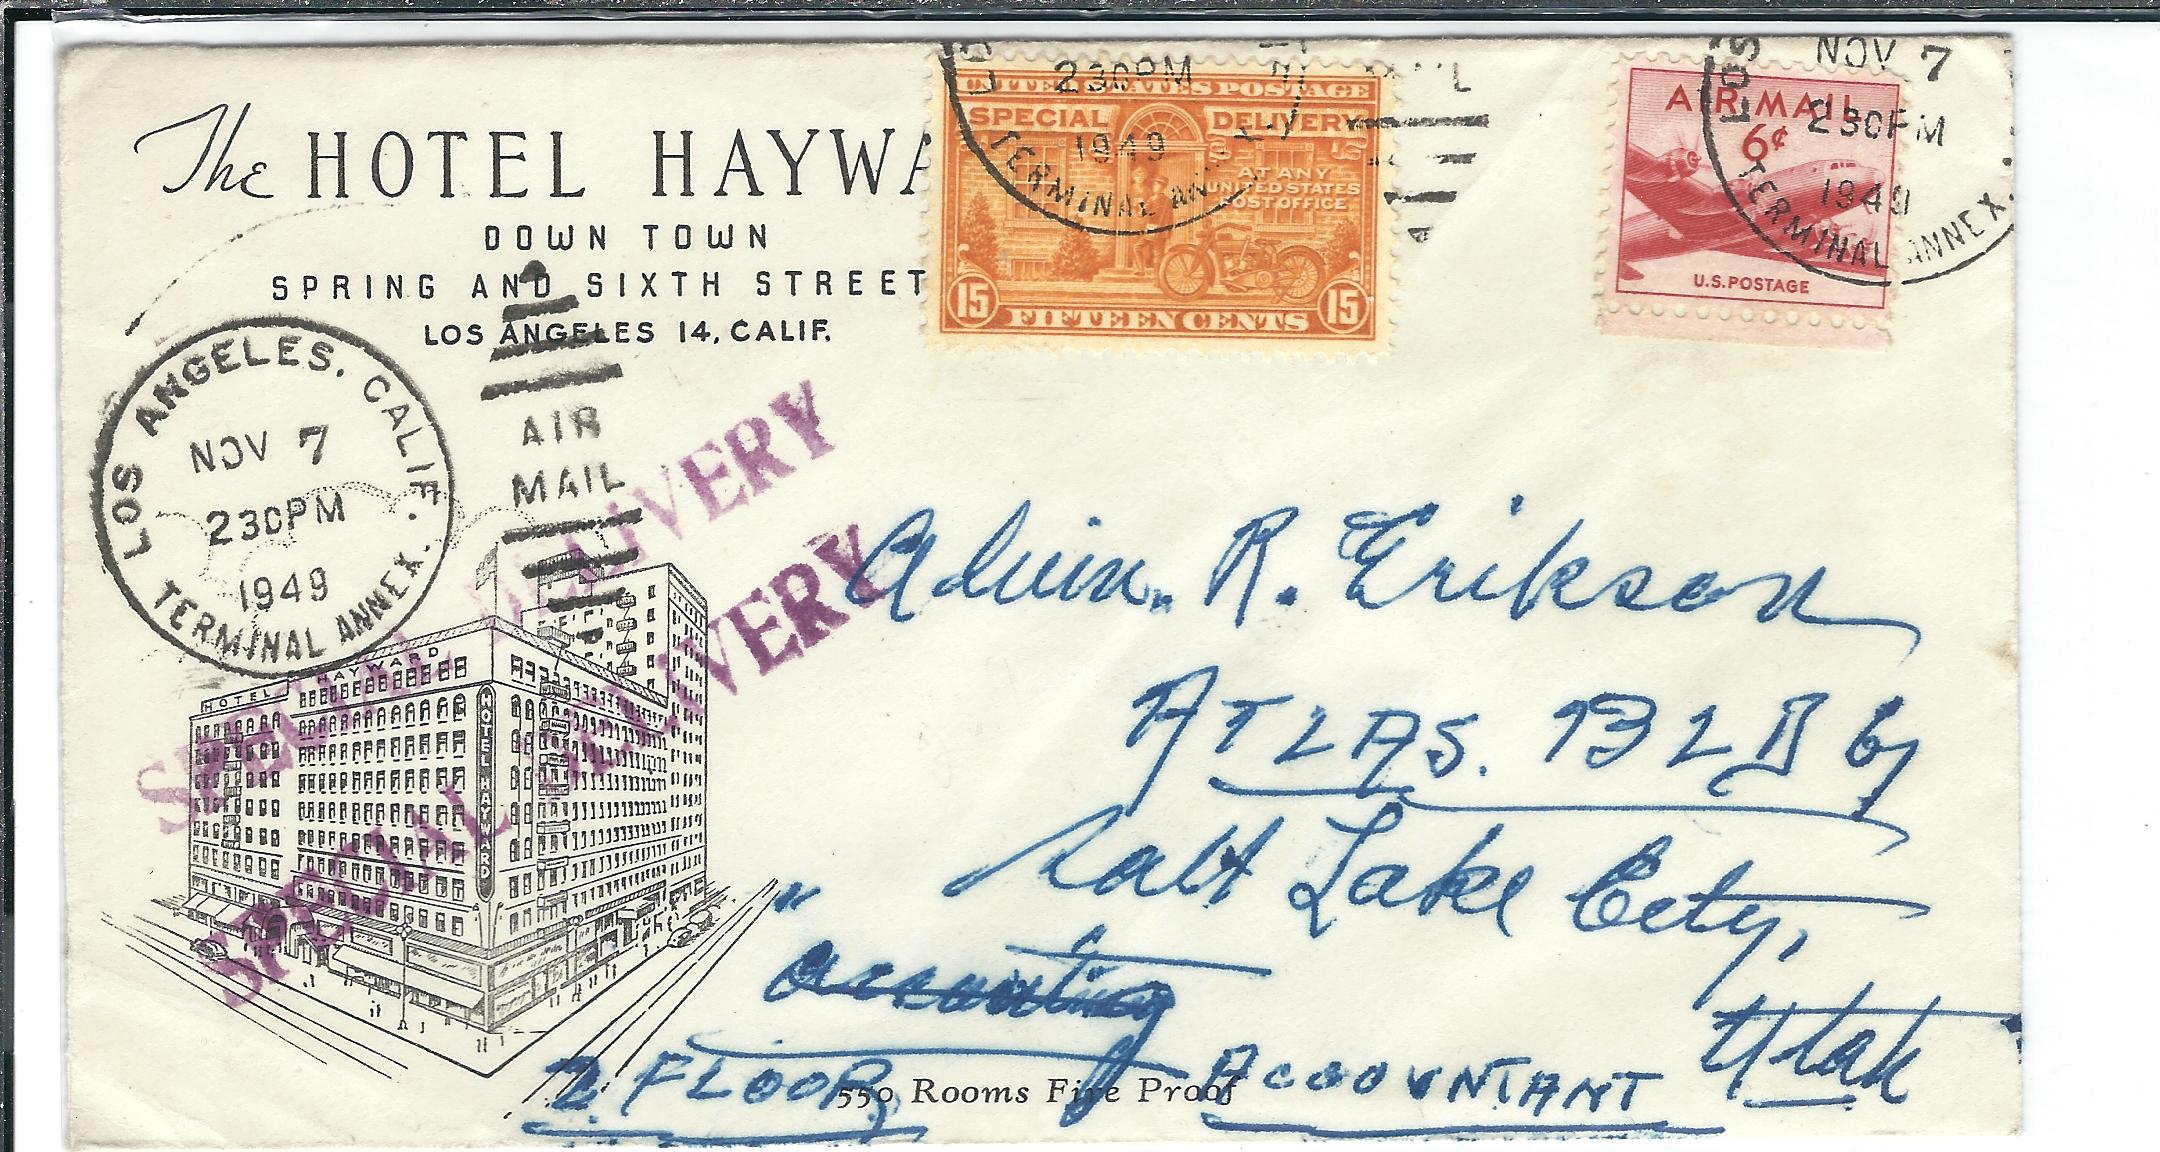 The HOTEL HAYWA
DOWN TOWN
SPRING AND SIXTH STREET
LOS ANGELES 14, CALIF.
UNITED STATES POSTAGE
SPECIAL DELIVERY
AT ANY
UNITED STATES
POST OFFICE
15 FIFTEEN CENTS 15
LOS
230PM
1949
TERMINAL ANNEX.
AIR MAIL
6¢
U.S. POSTAGE
LOS
NOV 7
230PM
1949
TERMINAL ANNEX.
LOS ANGELES, CALIF.
NOV 7
230PM
1949
TERMINAL ANNEX.
AIR
MAIL
SPECIAL DELIVERY
SPECIAL DELIVERY
HOTEL HAYWARD
HOTEL HAYWARD
Alvin. R. Erikson
ATLAS. BLDG
Salt Lake City,
Utah
accounting
2 FLOOR, ACCOUNTANT
550 Rooms Fire Proof